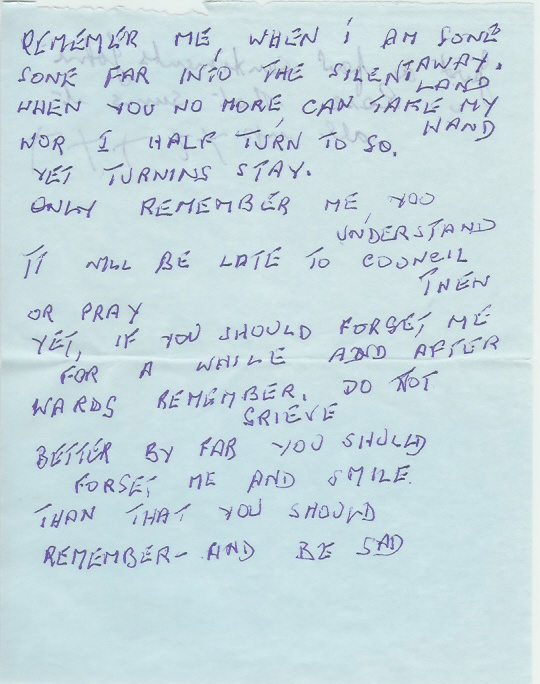 REMEMBER ME, WHEN I AM GONE
AWAY.
GONE FAR INTO THE SILENT
LAND
WHEN YOU NO MORE CAN TAKE MY
HAND
NOR I HALF TURN TO GO.
YET TURNING STAY.
ONLY REMEMBER ME, YOU
UNDERSTAND
IT WILL BE LATE TO COUNCIL
THEN
OR PRAY
YET, IF YOU SHOULD FORGET ME
FOR A WHILE AND AFTER
WARDS REMEMBER. DO NOT
GRIEVE
BETTER BY FAR YOU SHOULD
FORGET ME AND SMILE.
THAN THAT YOU SHOULD
REMEMBER- AND BE SAD